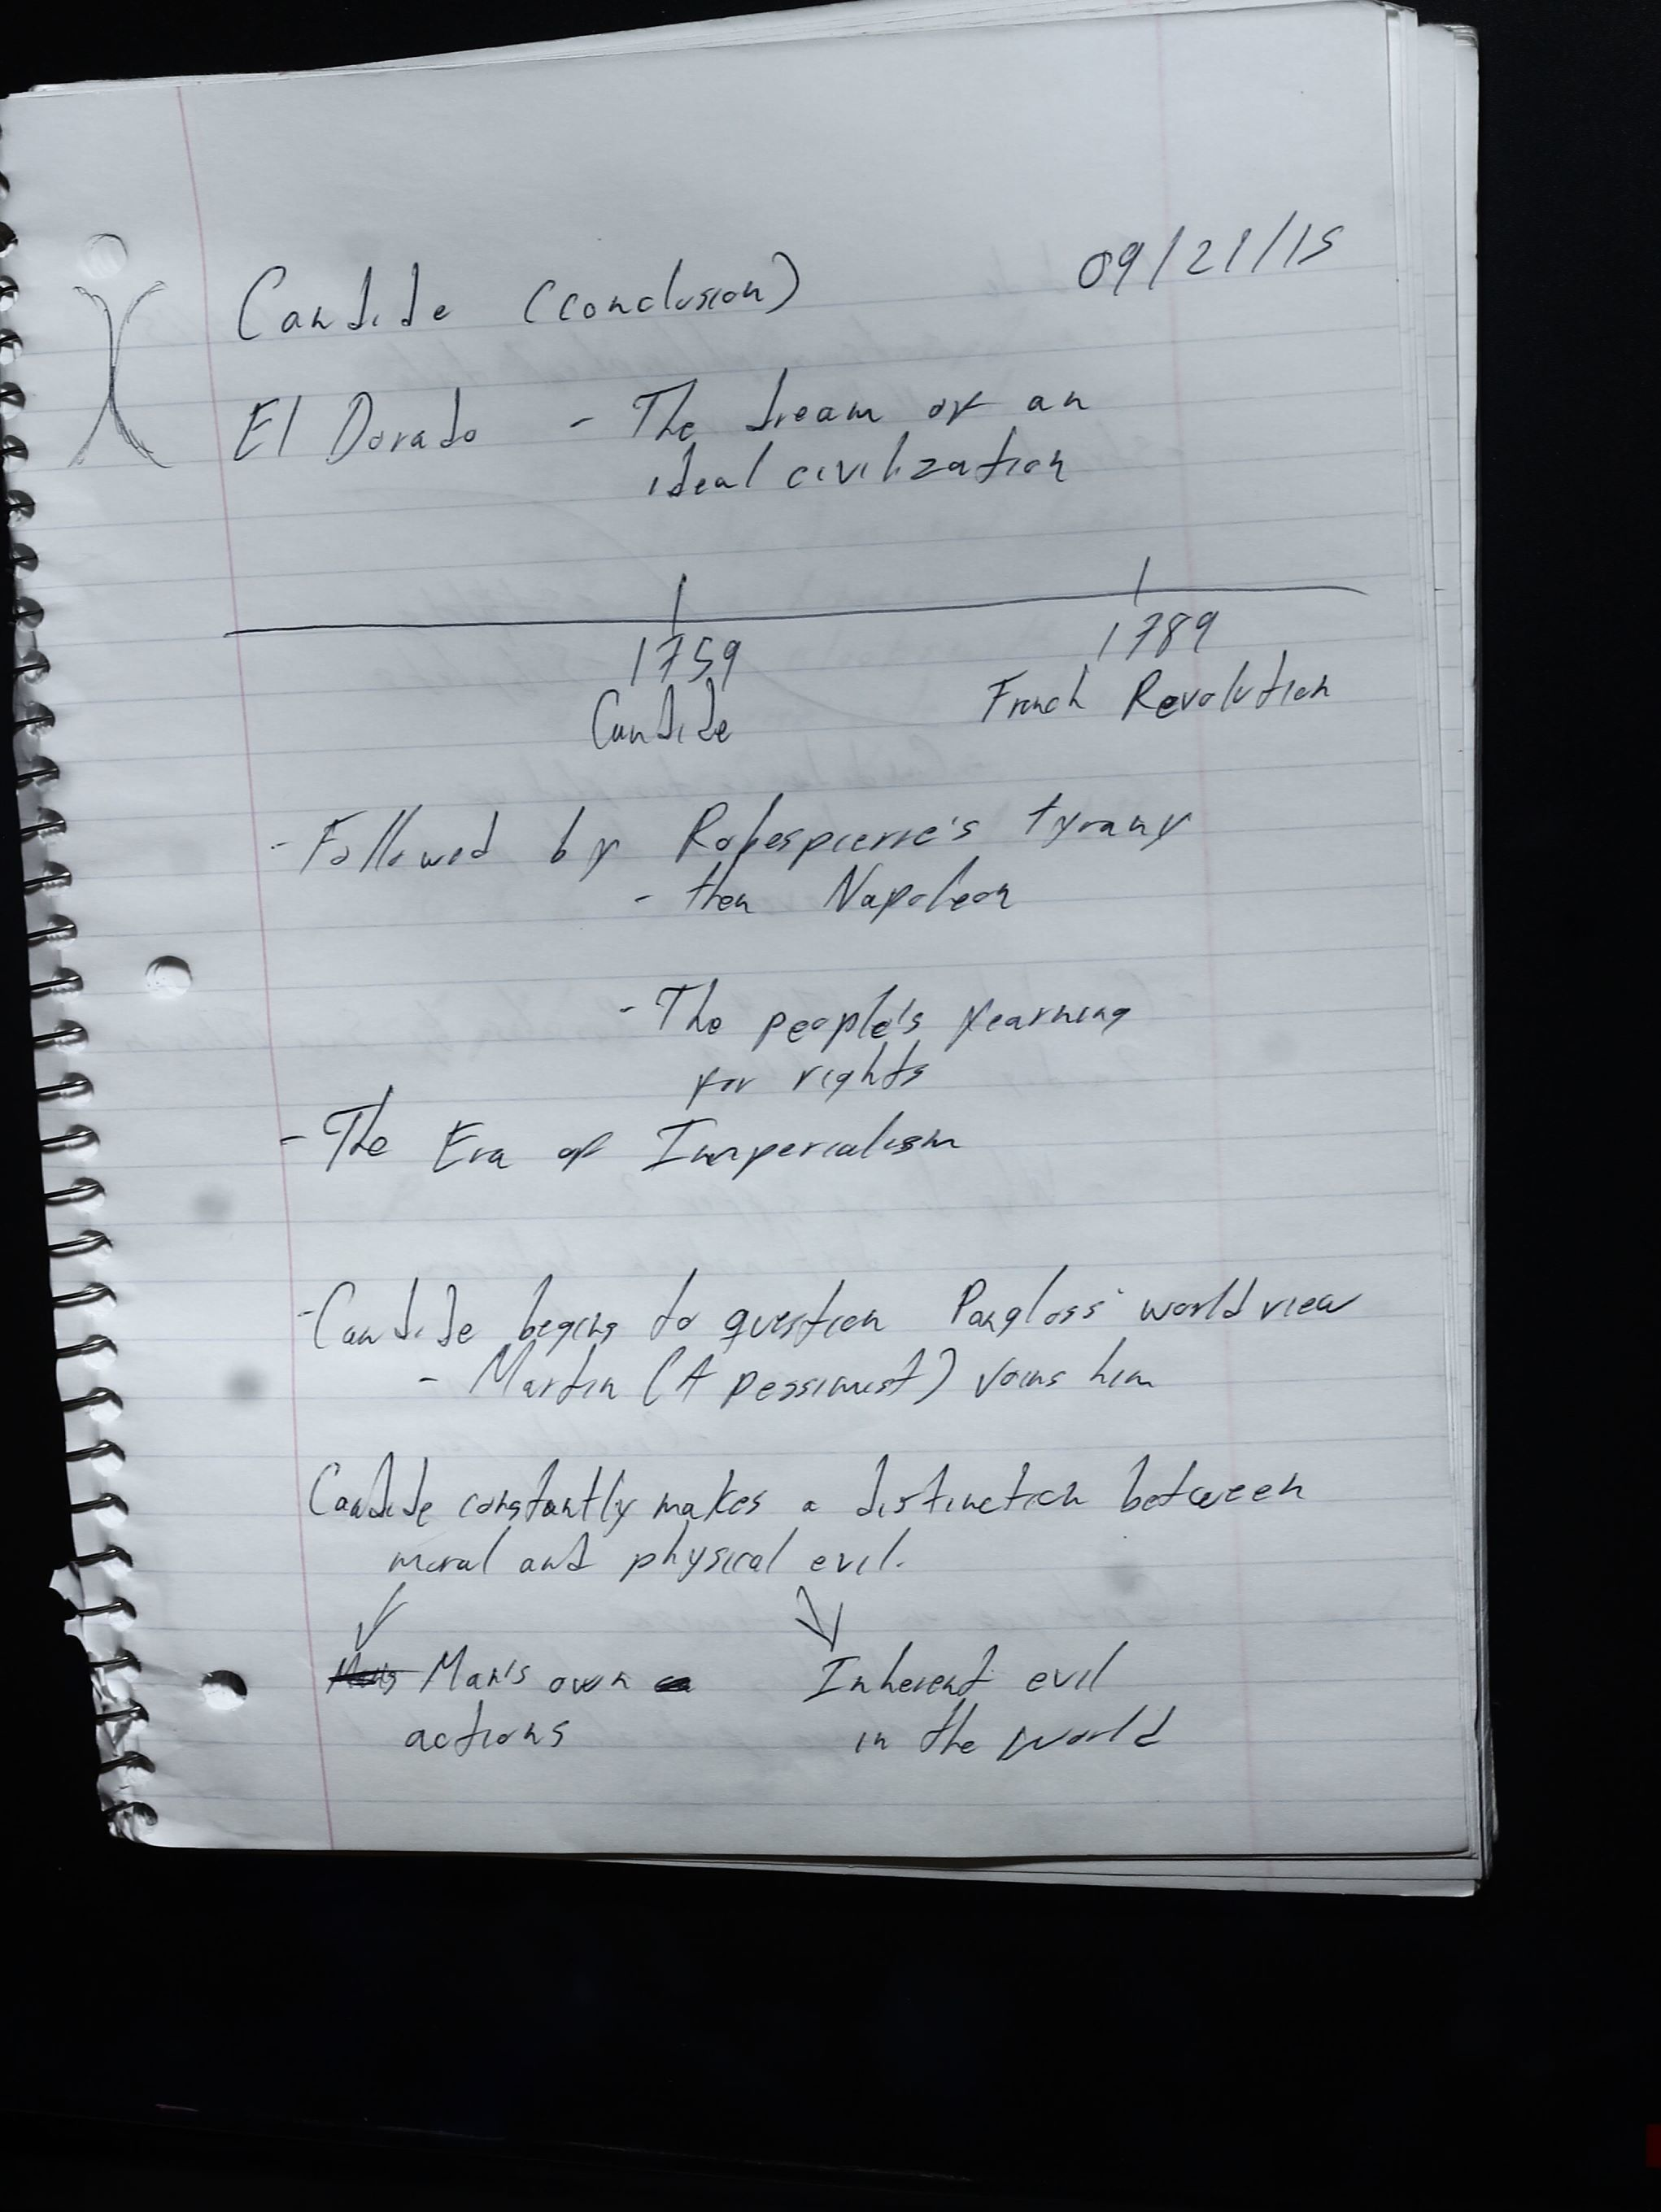 Candide (conclusion) 09/21/15
El Dorado - The dream of an
ideal civilization
1759 1789
Candide French Revolution
- Followed by Robespierre's tyrany
- then Napoleon
- The people's yearning
for rights
- The Era of Immperialism
- Candide begins to question Pangloss' world view
- Martin (A pessimist) joins him
Candide constantly makes a distinction between
moral and physical evil.
Man's own Inherent evil
actions in the world